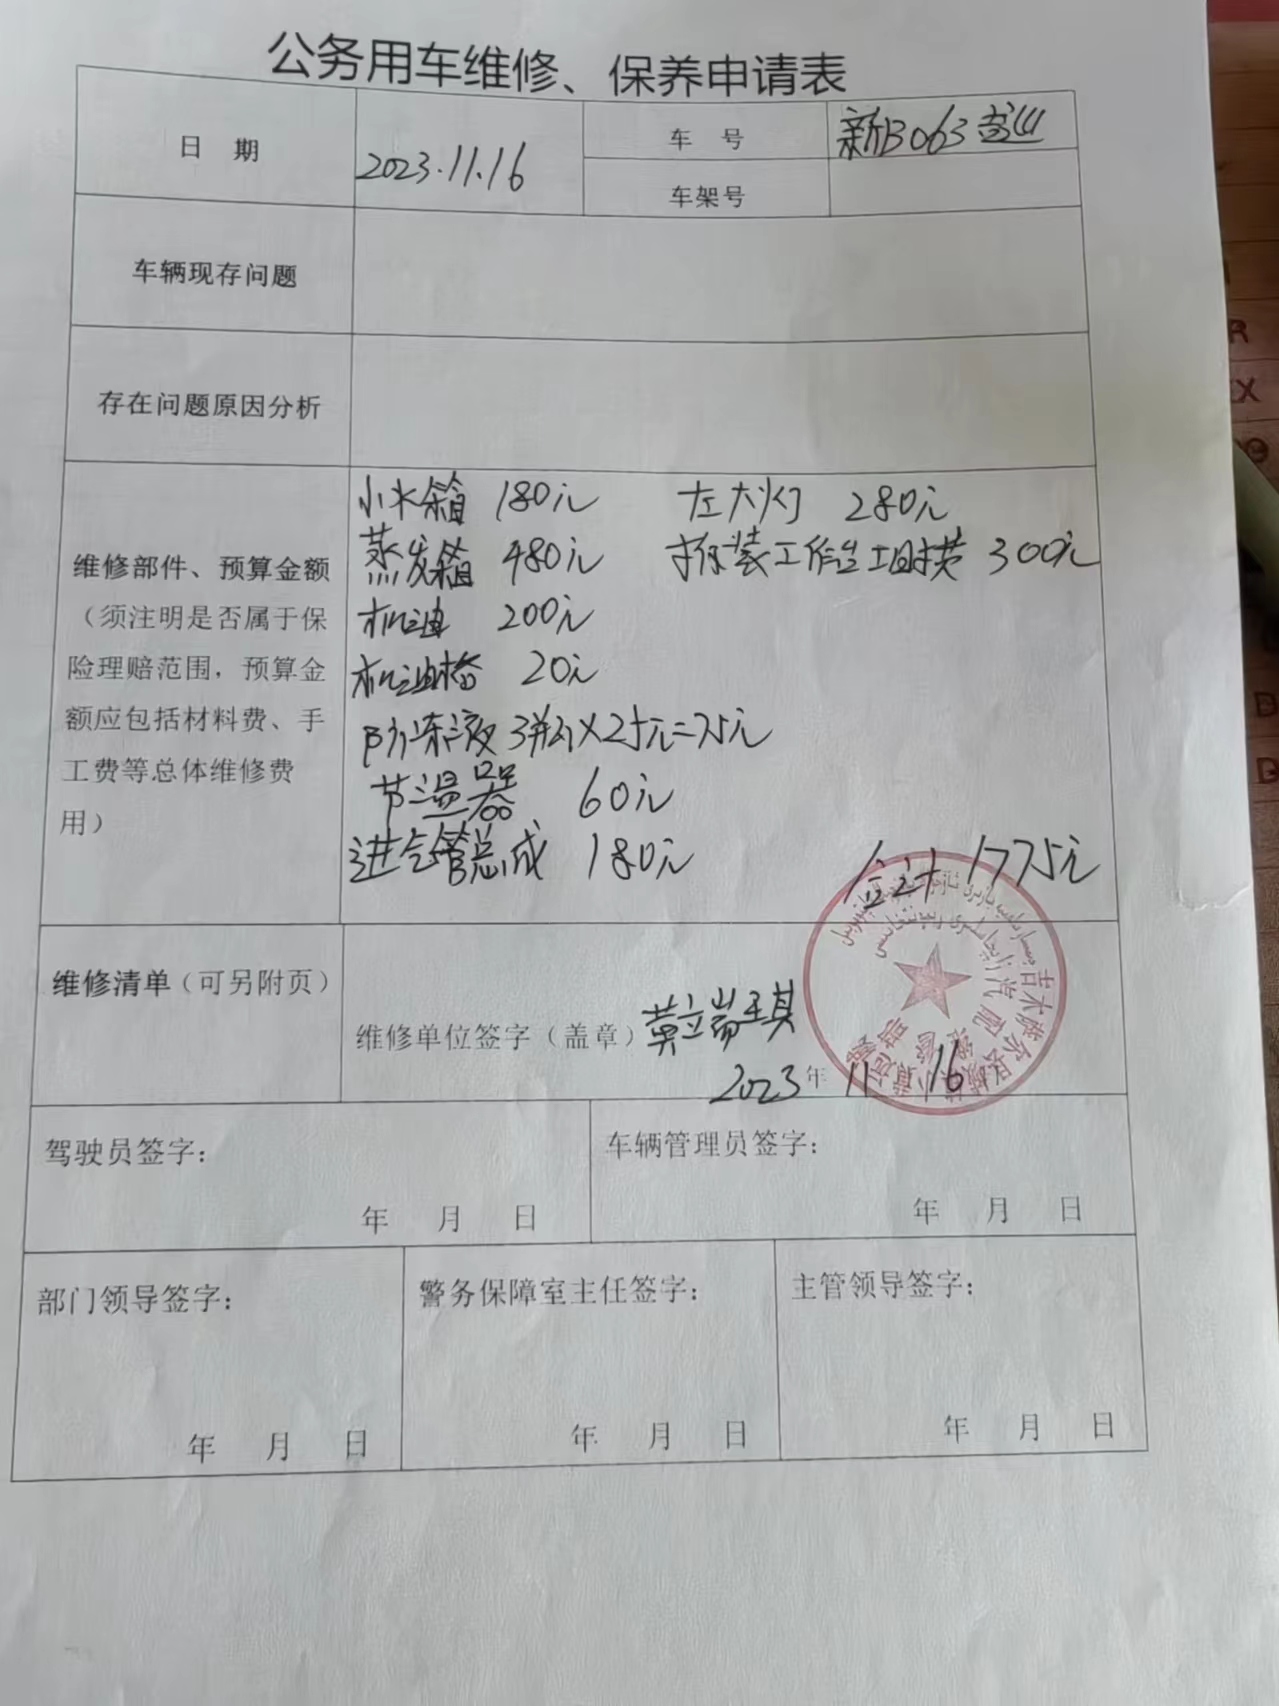 公务用车维修、保养申请表
日 期
2023.11.16
车 号
新B063警
车架号
车辆现存问题
存在问题原因分析
维修部件、预算金额
（须注明是否属于保
险理赔范围，预算金
额应包括材料费、手
工费等总体维修费
用）
小水箱 180元 左大灯 280元
蒸发箱 480元 拆装工作台 300元
机油 200元
机油格 20元
防冻液 3瓶×25元=75元
节温器 60元
进气管总成 180元
合计 1775元
维修清单（可另附页）
维修单位签字（盖章）
2023年 11 16
吉木萨尔县
汽配
驾驶员签字：
年 月 日
车辆管理员签字：
年 月 日
部门领导签字：
年 月 日
警务保障室主任签字：
年 月 日
主管领导签字：
年 月 日